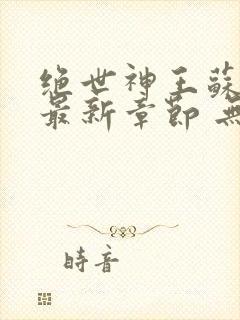 绝世神王蘇
最新章節 無
時音